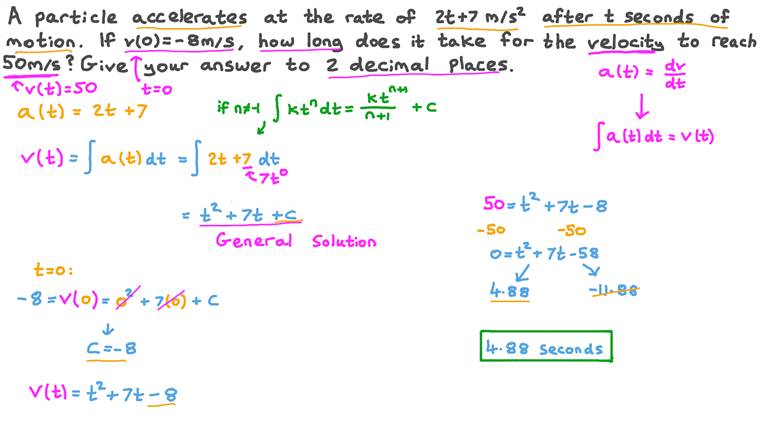 A particle accelerates at the rate of 2t+7 m/s² after t seconds of
motion. If v(0)=-8m/s, how long does it take for the velocity to reach
50m/s? Give your answer to 2 decimal places.
v(t)=50
t=0
a(t) = dv/dt
a(t) = 2t+7
if n≠-1 ∫ktⁿdt = ktⁿ⁺¹/n+1 + c
∫a(t)dt = v(t)
v(t) = ∫a(t)dt = ∫2t+7 dt
7t⁰
= t² + 7t + c
General Solution
t=0:
-8 = v(0) = 0² + 7(0) + c
c = -8
v(t) = t² + 7t - 8
50 = t² + 7t - 8
-50 -50
0 = t² + 7t - 58
4.88 -11.88
4.88 seconds